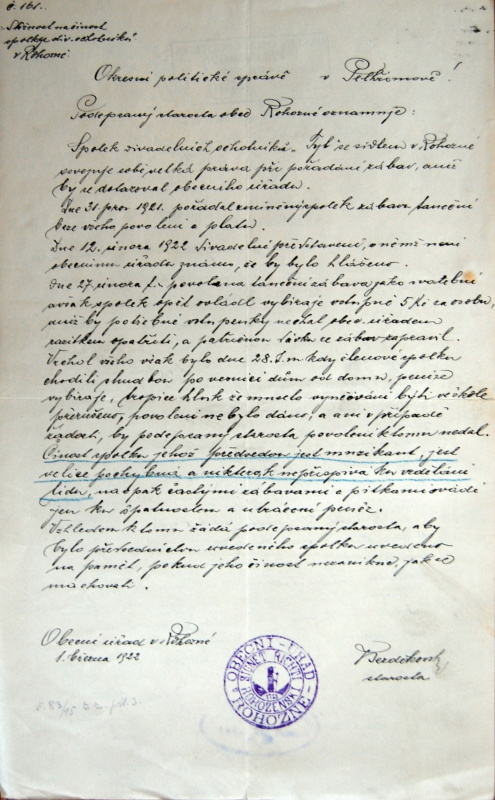 č. 161.
Stížnost na činost
spolku div. ochotníků
v Rohozné
Okresní politické správě v Pelhřimově!
Podepsaný starosta obce Rohozné oznamuje:
Spolek divadelních ochotníků "Tyl" se sídlem v Rohozné
osvojuje sobě velká práva při pořádání zábav, aniž
by se dotazoval obecního úřadu.
Dne 31. pros. 1921. pořádal zmíněný spolek zábavu taneční
beze všeho povolení a platu.
Dne 12. února 1922 divadelní představení, o němž není
obecnímu úřadu známo, že by bylo hlášeno.
Dne 27. února t.r. povolena taneční zábava jako svatební
avšak spolek opět ovládl vybíraje vstupné 5 Kč za osobu,
aniž by potřebné vstupenky nechal obec. úřadem
razítkem opatřiti, a patřičnou dávku ze zábav zapravil.
Vrchol všeho však bylo dne 28. t.m. kdy členové spolku
chodili s hudbou po vesnici dům od domu, peníze
vybíraje, tropíce hluk že muselo vyučování býti ve škole
přerušeno, povolení nebylo dáno, a ani v případě
žádosti, by podepsaný starosta povolení k tomu nedal.
Činost spolku jehož předsedou jest muzikant, jest
velice pochybená a nikterak nepřispívá ku vzdělání
lidu, naopak častými zábavami a pitkami svádí
jen ku špatnostem a utrácení peněz.
Vzhledem k tomu žádá podepsaný starosta, aby
bylo předsednictvo uvedeného spolku uvedeno
na paměť, pokud jeho činost nezanikne, jak se
má chovati.
Obecní úřad v Rohozné
1. března 1922
OBECNÍ ÚŘAD
ROHOZNÉ
starosta